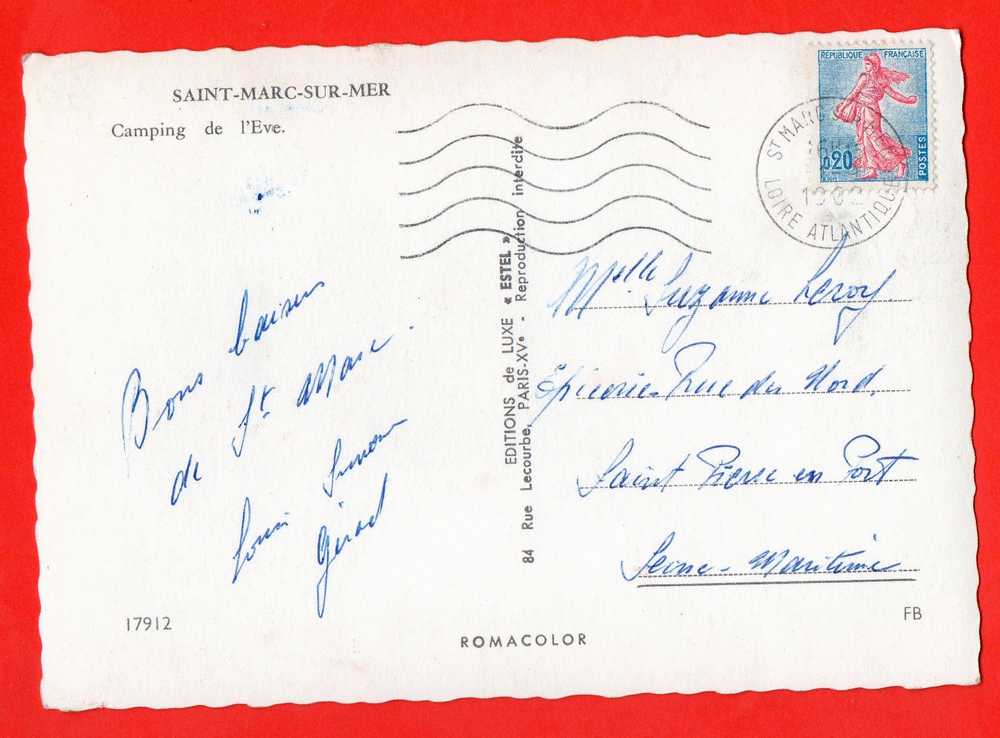 SAINT-MARC-SUR-MER
Camping de l'Eve.
Bons baisers
de St Marc.
Louis Simone
Gérard
17912
EDITIONS de LUXE « ESTEL »
84 Rue Lecourbe, PARIS-XVe - Reproduction interdite
REPUBLIQUE FRANÇAISE
0,20
POSTES
ST MARC
LOIRE ATLANTIQUE
Melle Suzanne Leroy
Epicerie Rue du Nord,
Saint Pierre en Port
Seine-Maritime
ROMACOLOR
FB